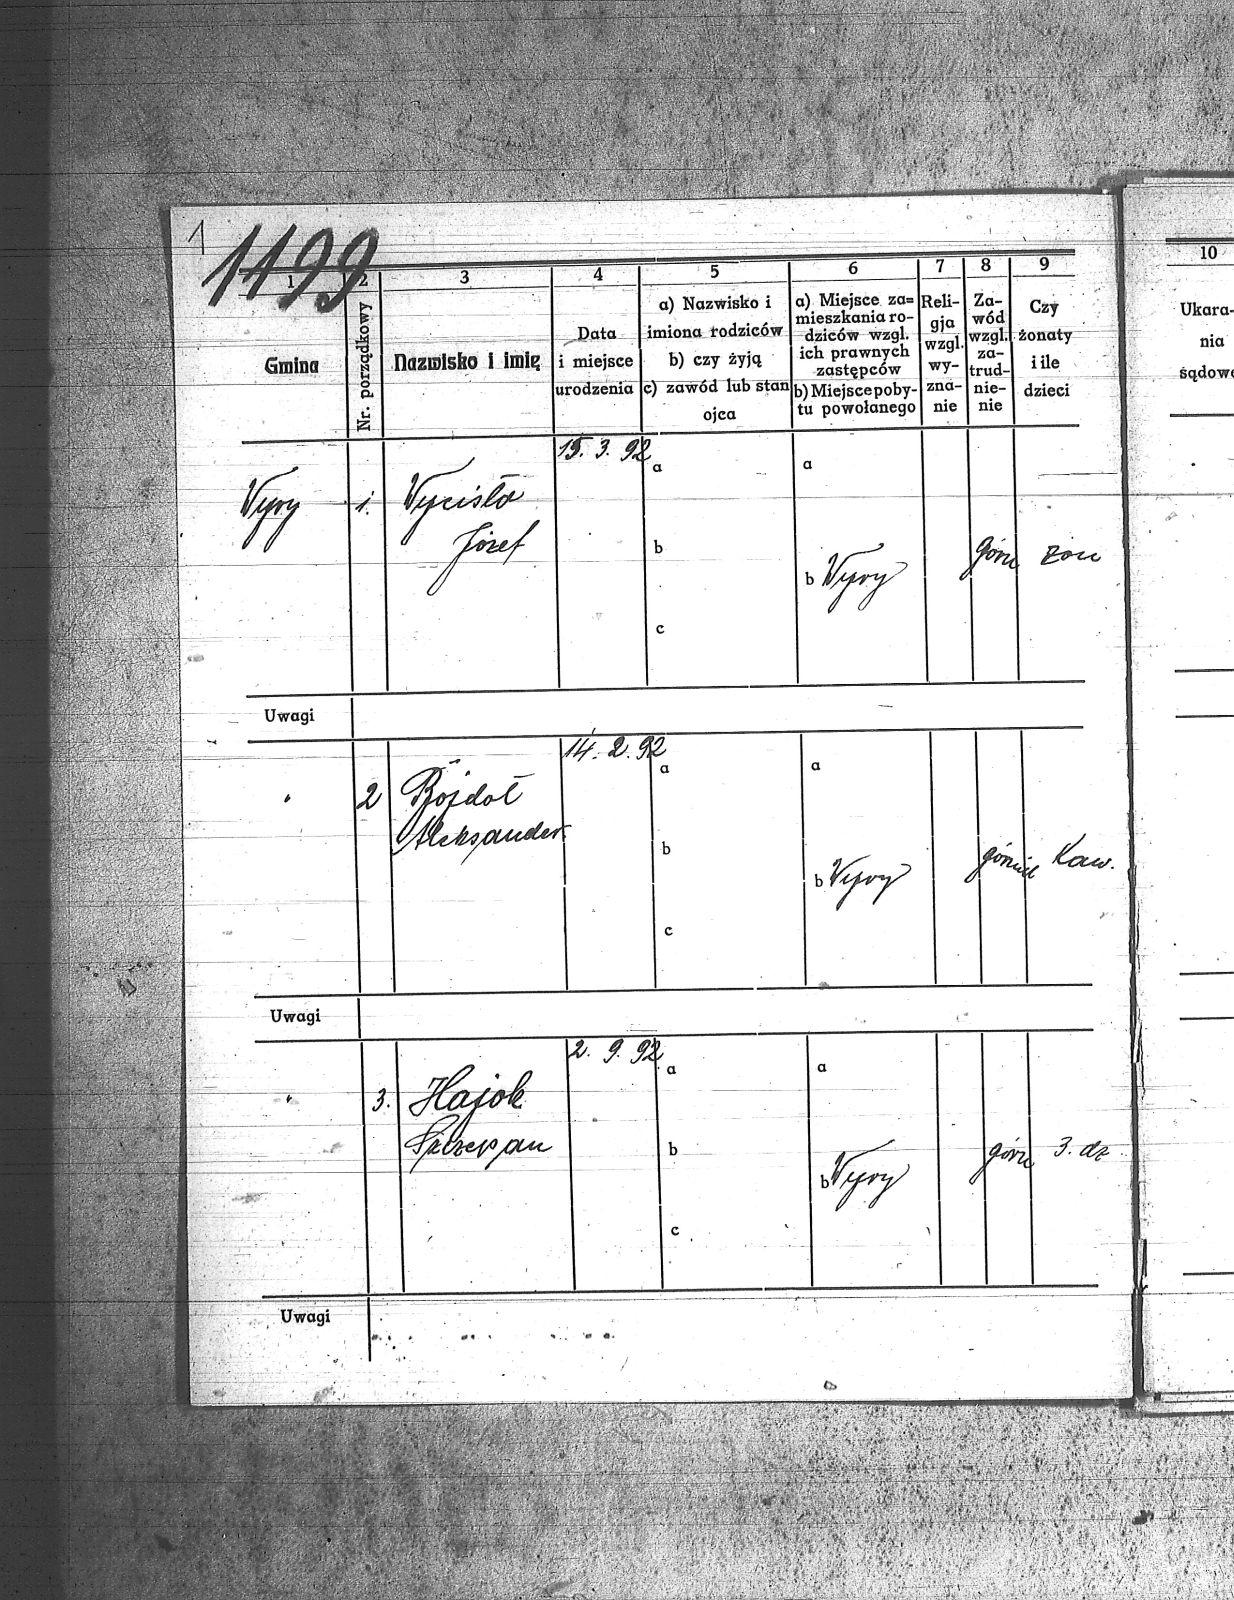 1
1499
1 2 3 4 5 6 7 8 9 10
Gmina
Nr. porządkowy
Nazwisko i imię
Data
i miejsce
urodzenia
a) Nazwisko i
imiona rodziców
b) czy żyją
c) zawód lub stan
ojca
a) Miejsce za=
mieszkania ro-
dziców wzgl.
ich prawnych
zastępców
b) Miejsce poby-
tu powołanego
Reli-
gja
wzgl.
wy-
zna-
nie
Za-
wód
wzgl.
za-
trud-
nie-
nie
Czy
żonaty
i ile
dzieci
Ukara-
nia
sądowe
15. 3. 92
Wyry 1. Wycisło
Józef
a
b
c
a
b Wyry
górn żon
Uwagi
14. 2. 92
" 2 Bojdoł
Aleksander
a
b
c
a
b Wyry
górnik Kaw.
Uwagi
2. 9. 92
" 3. Hajok
Szczepan
a
b
c
a
b Wyry
górn 3. dz
Uwagi